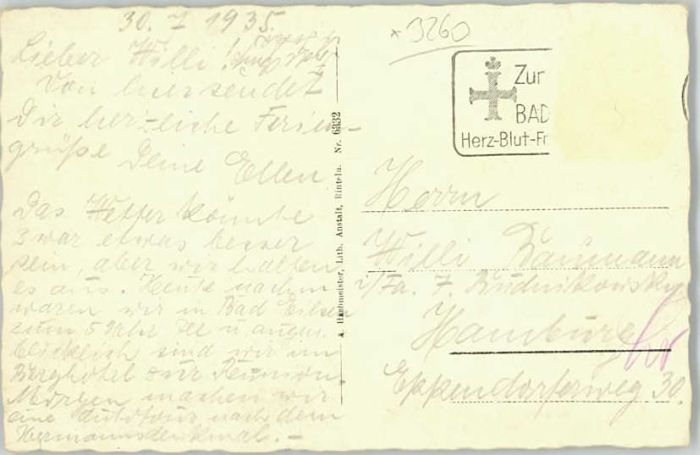 30. 7. 1935.
Lieber Willi!
Von hier sendet
Dir herzliche Ferien-
grüße Deine Ellen
Das Wetter könnte
zwar etwas besser
sein, aber wir halten
es aus. Heute nachm.
waren wir in Bad Eilsen
zum 5 Uhr Tee u. augen-
blicklich sind wir im
Berghotel zur Reunion
Morgen machen wir
eine Autotour nach dem
Hermannsdenkmal. –
A. Hambmeister, Lith. Anstalt, Rinteln. Nr. 6332
* 3260
Zur
BAD
Herz-Blut-Fr
Herrn
Willi
i/Fa. F. Rudnikowsky
Hamburg
Eppendorferweg 30.